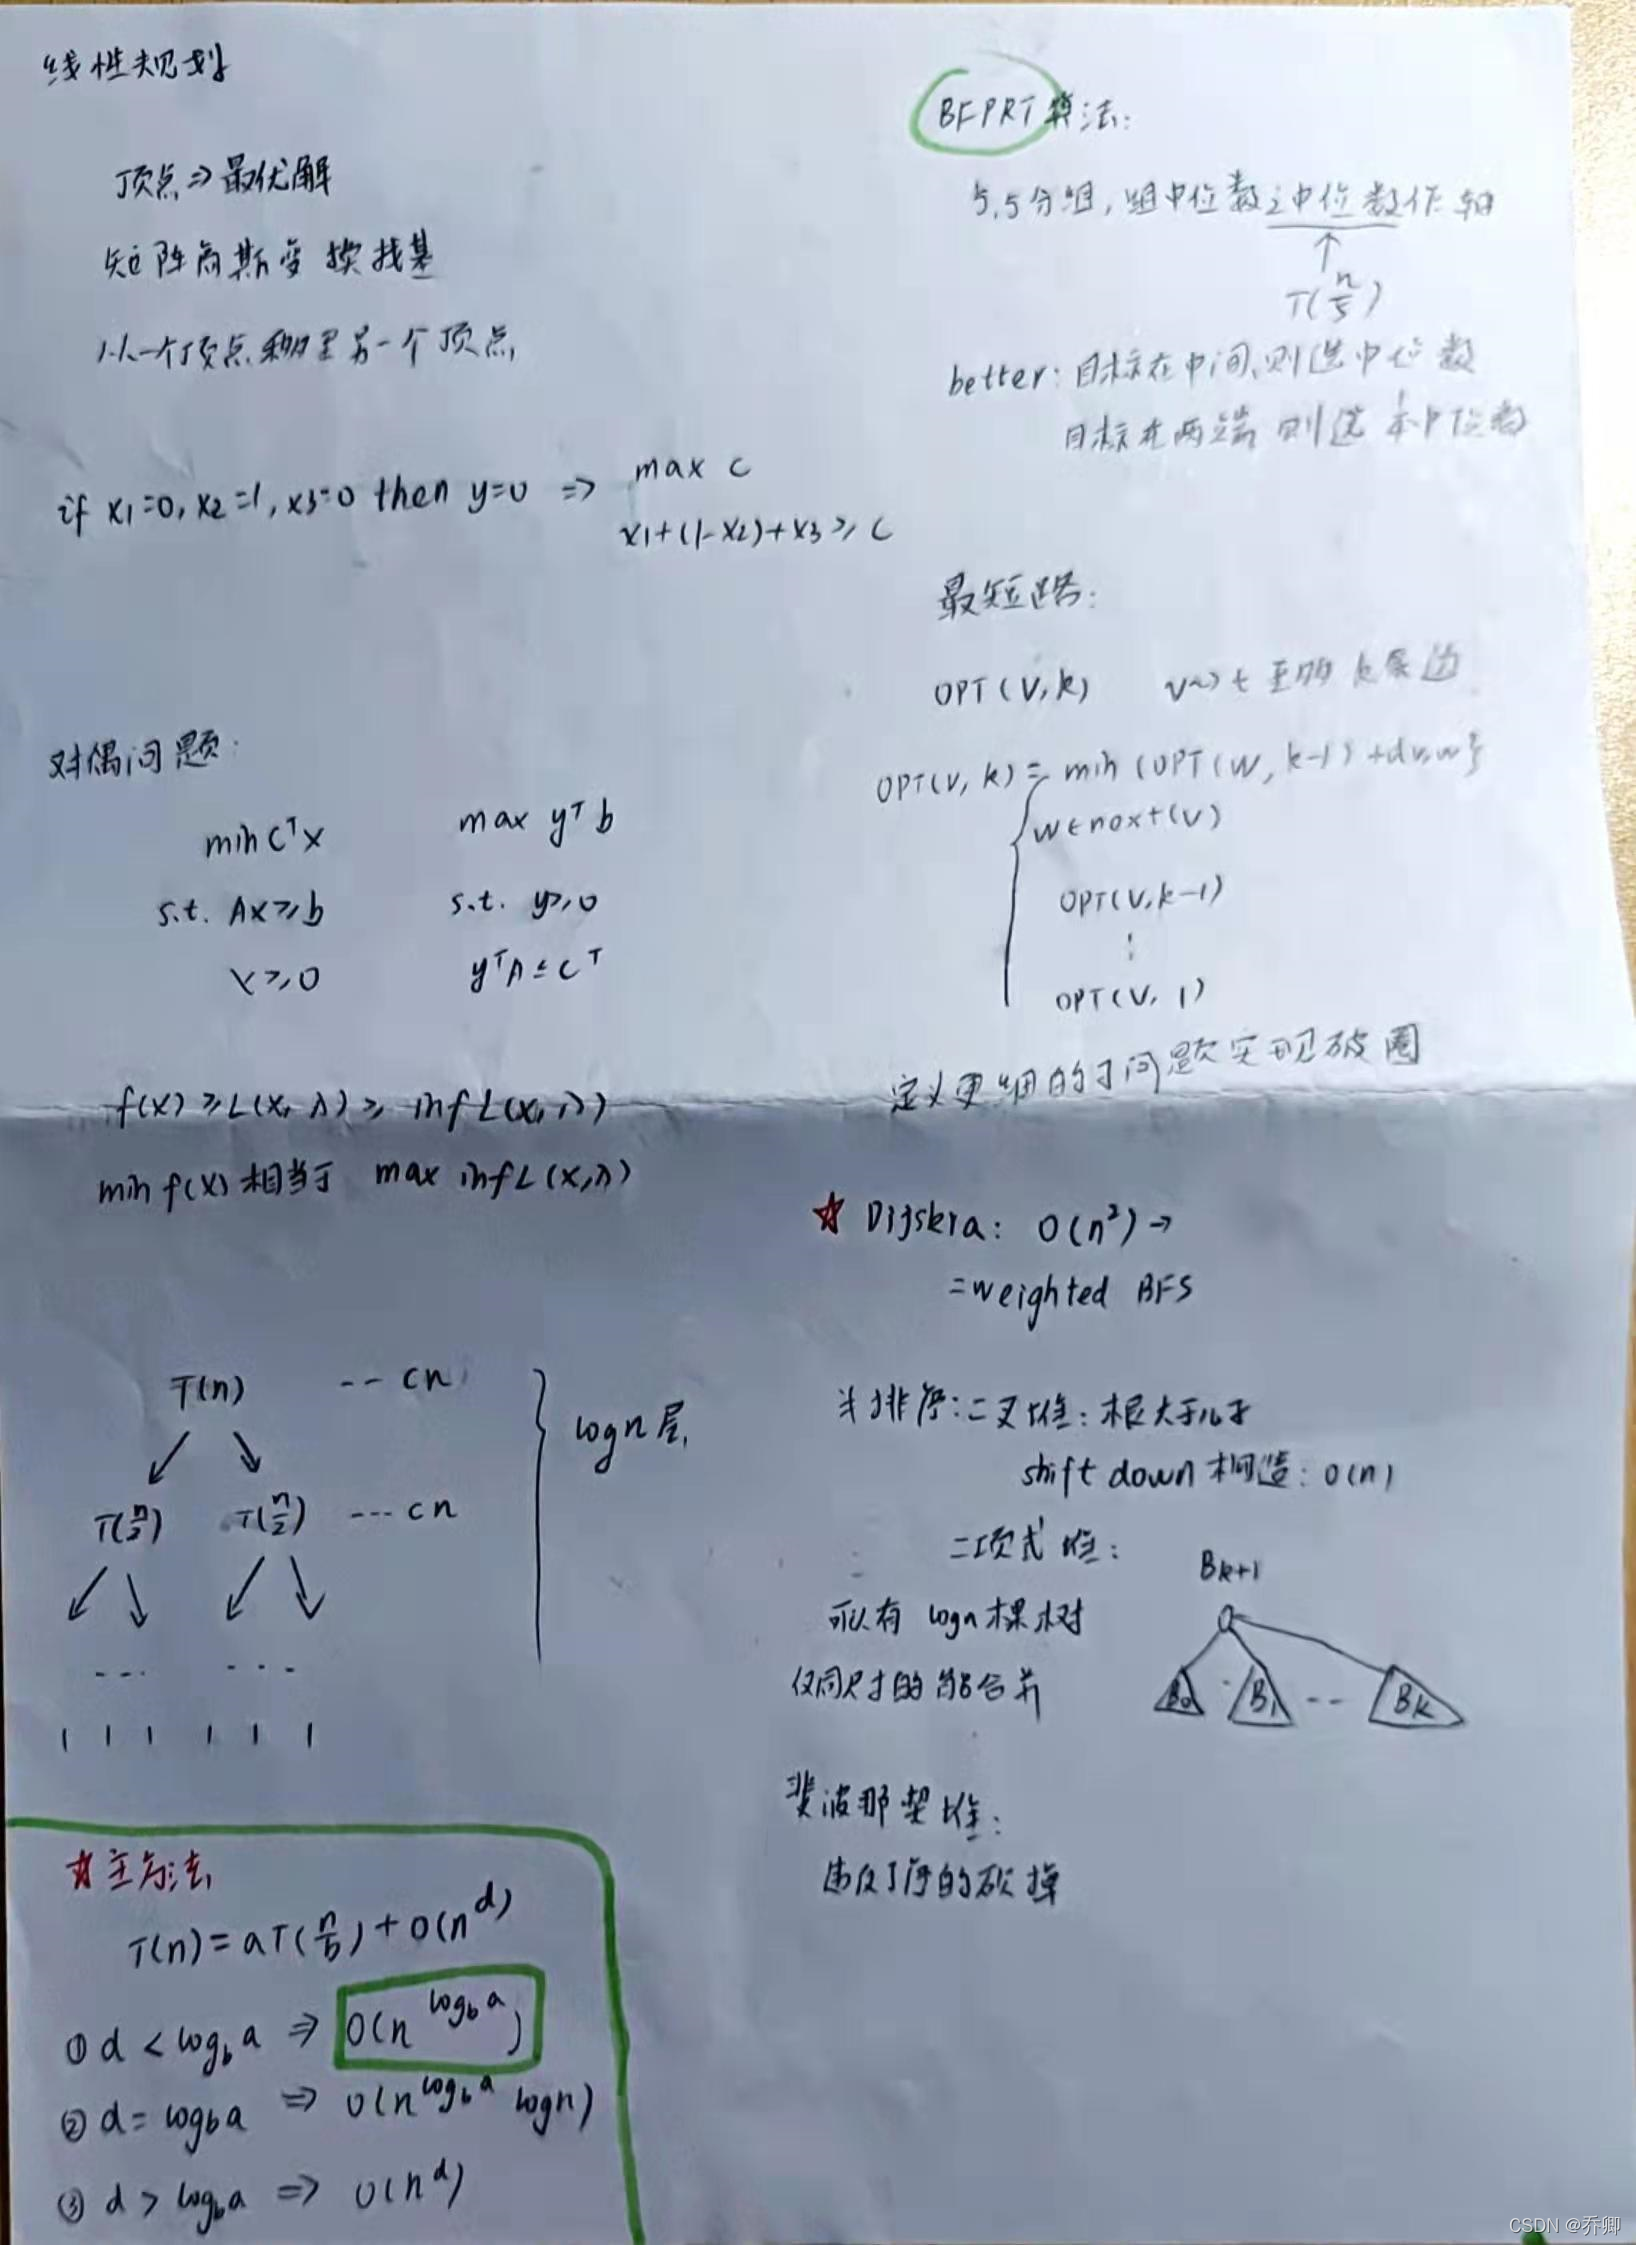 线性规划
顶点⇒最优解
矩阵高斯变换找基
从一个顶点挪到另一个顶点
if x1=0, x2=1, x3=0 then y=0 ⇒ max c
x1+(1-x2)+x3≥c
对偶问题:
min cᵀx    max yᵀb
s.t. Ax≥b    s.t. y≥0
x≥0    yᵀA≤cᵀ
f(x)≥L(x,λ)≥ inf L(x,λ)
min f(x) 相当于 max inf L(x,λ)
T(n) -- cn
logn层
T(n/2) T(n/2) --- cn
--- ---
1 1 1 1 1 1
☆主方法
T(n)=aT(n/b)+O(n^d)
① d < log_b a ⇒ O(n^{log_b a})
② d = log_b a ⇒ O(n^{log_b a} logn)
③ d > log_b a ⇒ O(n^d)
BFPRT算法:
5,5分组,组中位数之中位数作轴
↑
T(n/5)
better: 目标在中间,则选中位数
目标在两端 则选 中位数
最短路:
OPT(v,k)    v~>t 至多 k条边
OPT(v,k)= min{OPT(w,k-1)+dv,w}
w∈noxt(v)
OPT(v,k-1)
⋮
OPT(v,1)
定义更细的子问题实现破圈
☆ Dijskra: O(n²)→
=weighted BFS
半排序:二叉堆:根大于儿子
shift down构造: O(n)
二项式堆:
Bk+1
可以有 logn棵树
仅同尺寸的能合并
B0 · B1 -- Bk
斐波那契堆:
违反了序的砍掉
CSDN @乔卿